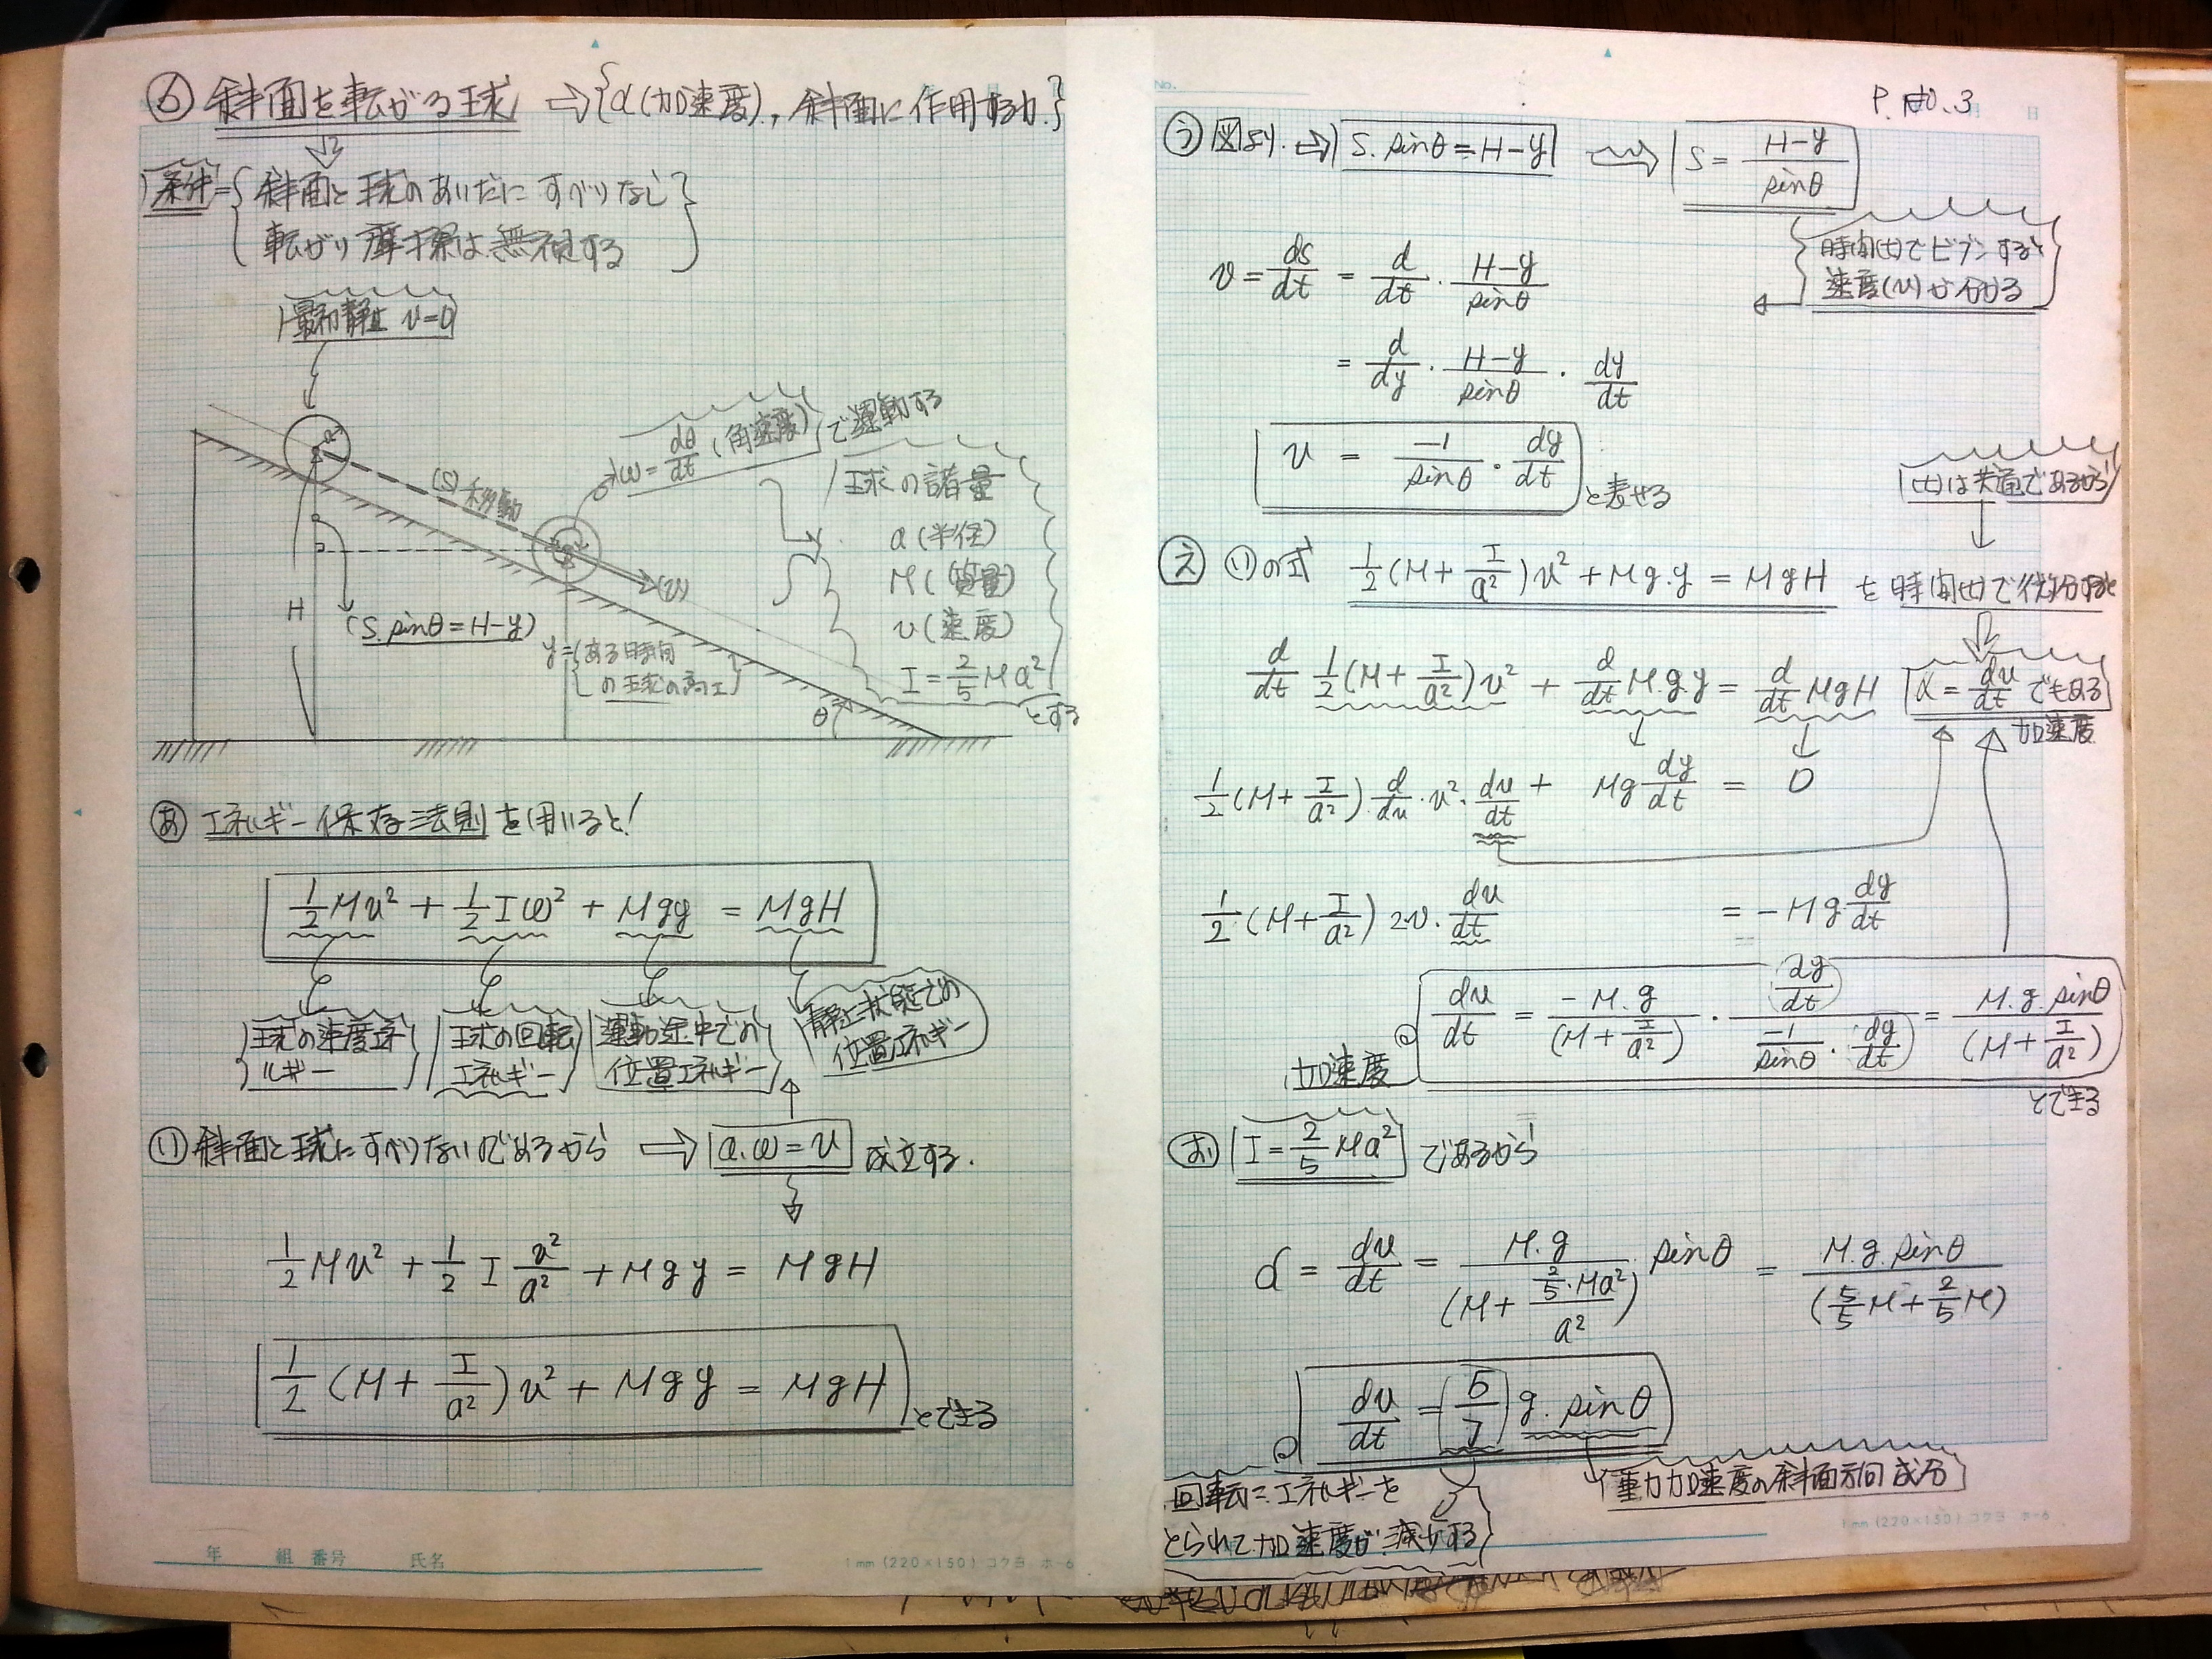 ⑥ 斜面を転がる球 ⇒ {α(加速度)., 斜面に作用する力.}
条件={斜面と球のあいだに すべりなし
転がり摩擦は無視する}
最初静止 v=0
ω=dθ/dt (角速度) で運動する
(S)移動
球の諸量
a (半径)
M (質量)
v (速度)
I=2/5 Ma²
とする
(v)
H
(S.sinθ=H-y)
y={ある時間
の球の高さ}
θ
あ エネルギー保存法則を用いると!
1/2 Mv² + 1/2 Iω² + Mgy = MgH
球の速度エネルギー
球の回転エネルギー
運動途中での位置エネルギー
静止状態での位置エネルギー
い 斜面と球にすべりないのであるから ⇒ a.ω=v 成立する.
1/2 Mv² + 1/2 I v²/a² + Mgy = MgH
1/2 (M + I/a²)v² + Mgy = MgH とできる
No.
P. NO. 3
日
う 図より. ⇒ S.sinθ=H-y → S = (H-y)/sinθ
時間(t)でビブンすると
速度(v)が分かる
v = ds/dt = d/dt・(H-y)/sinθ
= d/dy・(H-y)/sinθ・dy/dt
v = -1/sinθ・dy/dt と表せる
(t)は共通であるから
え (い)の式 1/2(M + I/a²)v² + Mg.y = MgH を時間(t)で微分すると
d/dt 1/2(M + I/a²)v² + d/dt M.g.y = d/dt MgH
α = dv/dt でもある
加速度
1/2(M + I/a²)・d/dv・v²・dv/dt + Mg dy/dt = 0
1/2・(M + I/a²) 2v・dv/dt = -Mg dy/dt
dv/dt = -M.g/(M + I/a²)・(dy/dt)/(-1/sinθ・dy/dt) = M.g.sinθ/(M + I/a²)
加速度
とできる
お I=2/5 Ma² であるから
α = dv/dt = M.g/(M + (2/5・Ma²)/a²)・sinθ = M.g.sinθ/(5/5 M + 2/5 M)
dv/dt = (5/7) g.sinθ
重力加速度の斜面方向成分
回転にエネルギーを
とられて加速度が減少する
年 組 番号 氏名
1mm (220×150) コクヨ ホ-6
1mm (220×150) コクヨ ホ-6